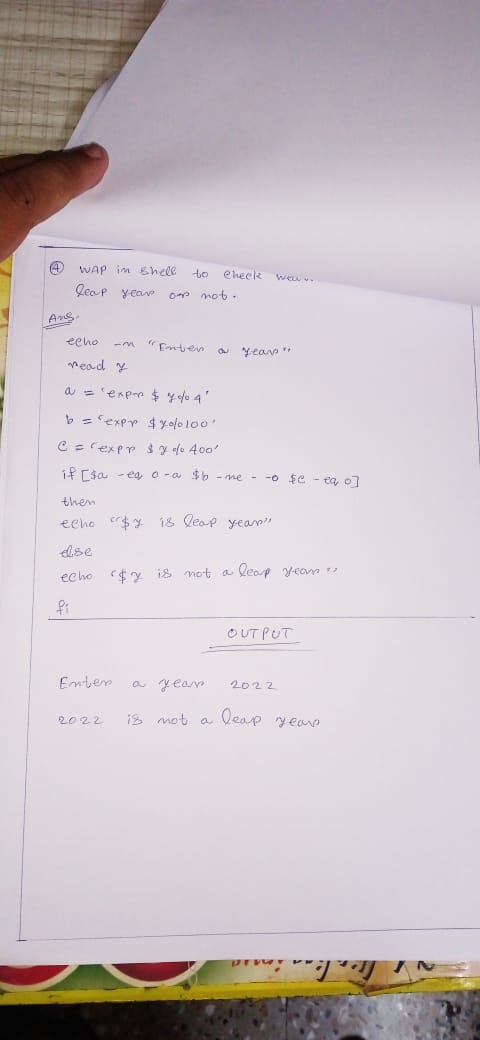 ④ WAP in shell to check
leap year or not.
Ans.
echo -n "Enter a year"
read y
a = 'expr $ y % 4'
b = 'expr $ y % 100'
c = 'expr $ y % 400'
if [$a -eq 0 -a $b -ne - -o $c -eq 0]
then
echo "$y is leap year"
else
echo "$y is not a leap year"
fi
OUTPUT
Enter a year 2022
2022 is not a leap year